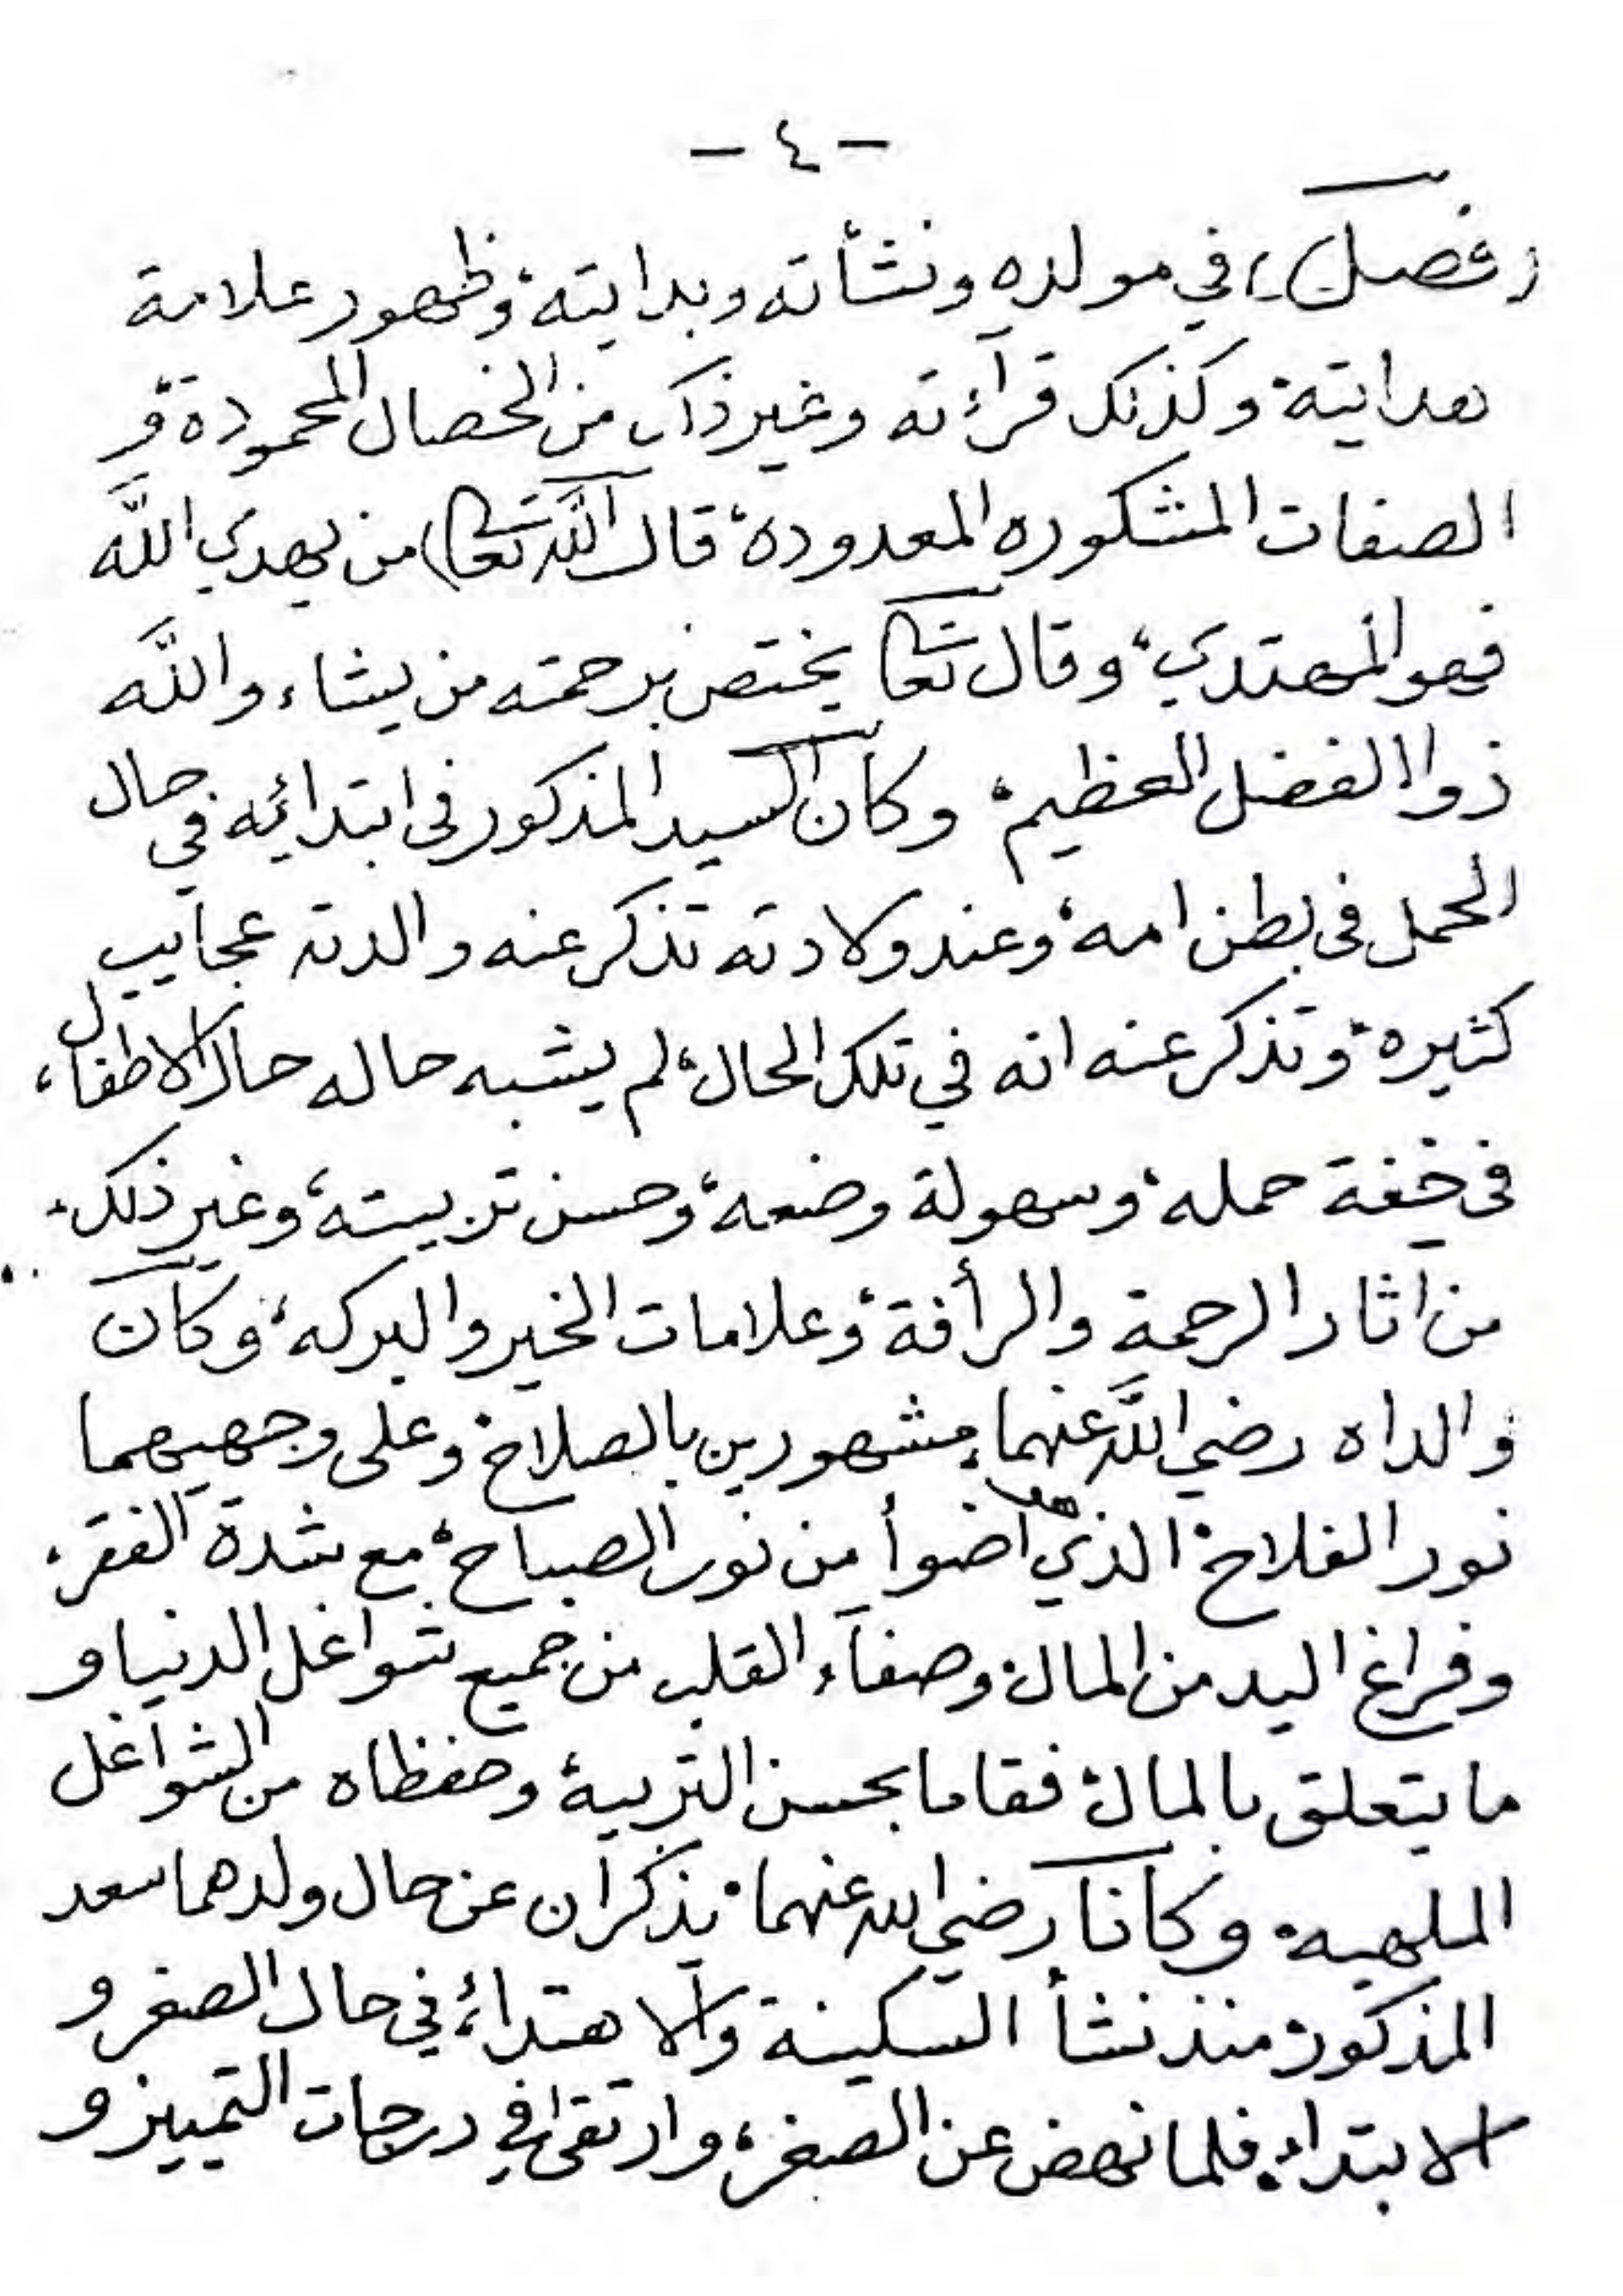 - ٤ -
(فصل) في مولده ونشأته وبدايته، وظهور علامة
هدايته، وكذلك قرآءته وغير ذلك من الخصال المحمودة، و
الصفات المشكوره المعدودة، قال الله تعالى) من يهدي الله
فهو المهتدي، وقال تعالى يختص برحمته من يشاء، والله
ذوا الفضل العظيم، وكان السيد المذكور في ابتدائه في حال
الحمل في بطن امه، وعند ولادته تذكر عنه والدته عجايب
كثيره، وتذكر عنه انه في تلك الحال، لم يشبه حاله حال الاطفال،
في خفة حمله، وسهولة وضعه، وحسن تربيته، وغير ذلك،
من اثار الرحمة والرأفة، وعلامات الخير والبركه، وكان
والداه رضي الله عنهما، مشهورين بالصلاح، وعلى وجهيهما
نور الفلاح، الذي هو اضوأ من نور الصباح، مع شدة الفقر،
وفراغ اليد من المال، وصفآء القلب من جميع شواغل الدنيا و
ما يتعلق بالمال، فقاما بحسن التربية، وحفظاه من الشواغل
الملهيه، وكانا رضي الله عنهما، يذكران عن حال ولدهما سعد
المذكور، منذ نشأ السكينة والاهتداء، في حال الصغر و
الابتداء، فلما نهض عن الصغر، وارتقى في درجات التمييز و